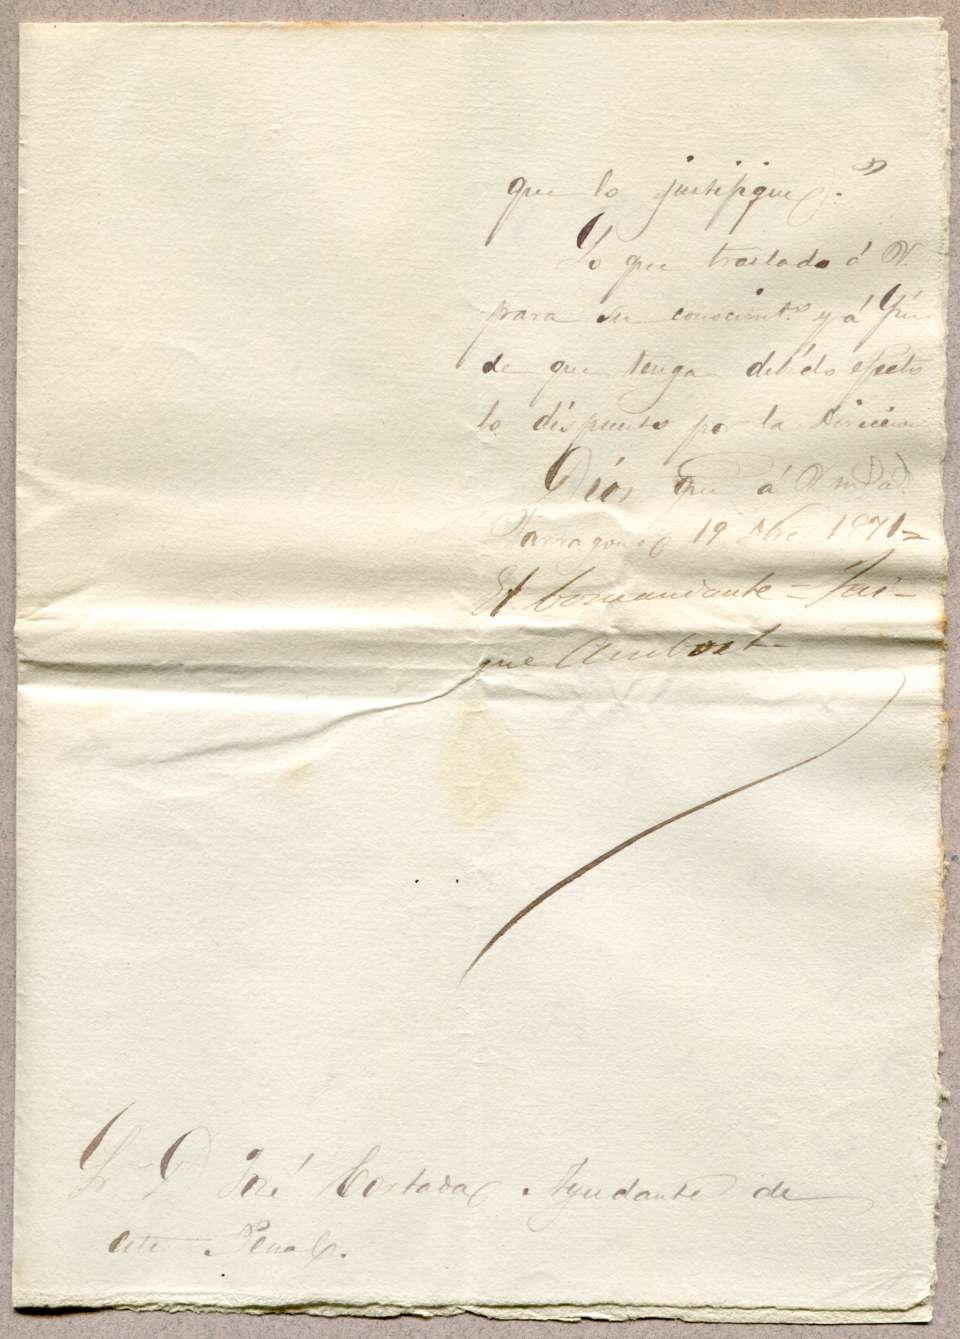 que lo justifique."
Lo que traslado á V.
para su conocimt.º y á fin
de que tenga debído efecto
lo díspuesto por la Direccion
Díos gue á V. m.s a.s
Tarragona 19 Dbre 1871=
El Comandante =
que
Sr D José Cortada Ayudante de
este Penal.